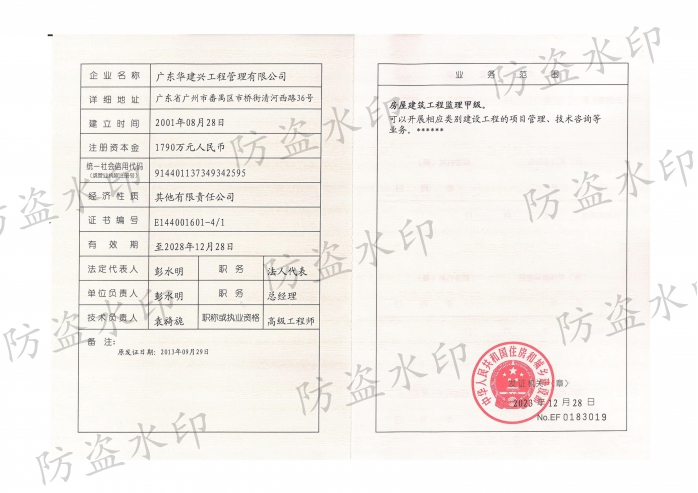 企业名称 广东华建兴工程管理有限公司
详细地址 广东省广州市番禺区市桥街清河西路36号
建立时间 2001年08月28日
注册资本金 1790万元人民币
统一社会信用代码 914401137349342595
经济性质 其他有限责任公司
证书编号 E144001601-4/1
有效期 至2028年12月28日
法定代表人 彭水明 职务 法人代表
单位负责人 彭水明 职务 总经理
技术负责人 袁旖旎 职称或执业资格 高级工程师
备注:
原发证日期:2013年09月29日
业务范围
房屋建筑工程监理甲级。
可以开展相应类别建设工程的项目管理、技术咨询等
业务。******
中华人民共和国住房和城乡建设部
发证机关(章)
2023年12月28日
No.EF 0183019
防盗水印
防盗水印
防盗水印
防盗水印
防盗水印
防盗水印
防盗水印
防盗水印
防盗水印